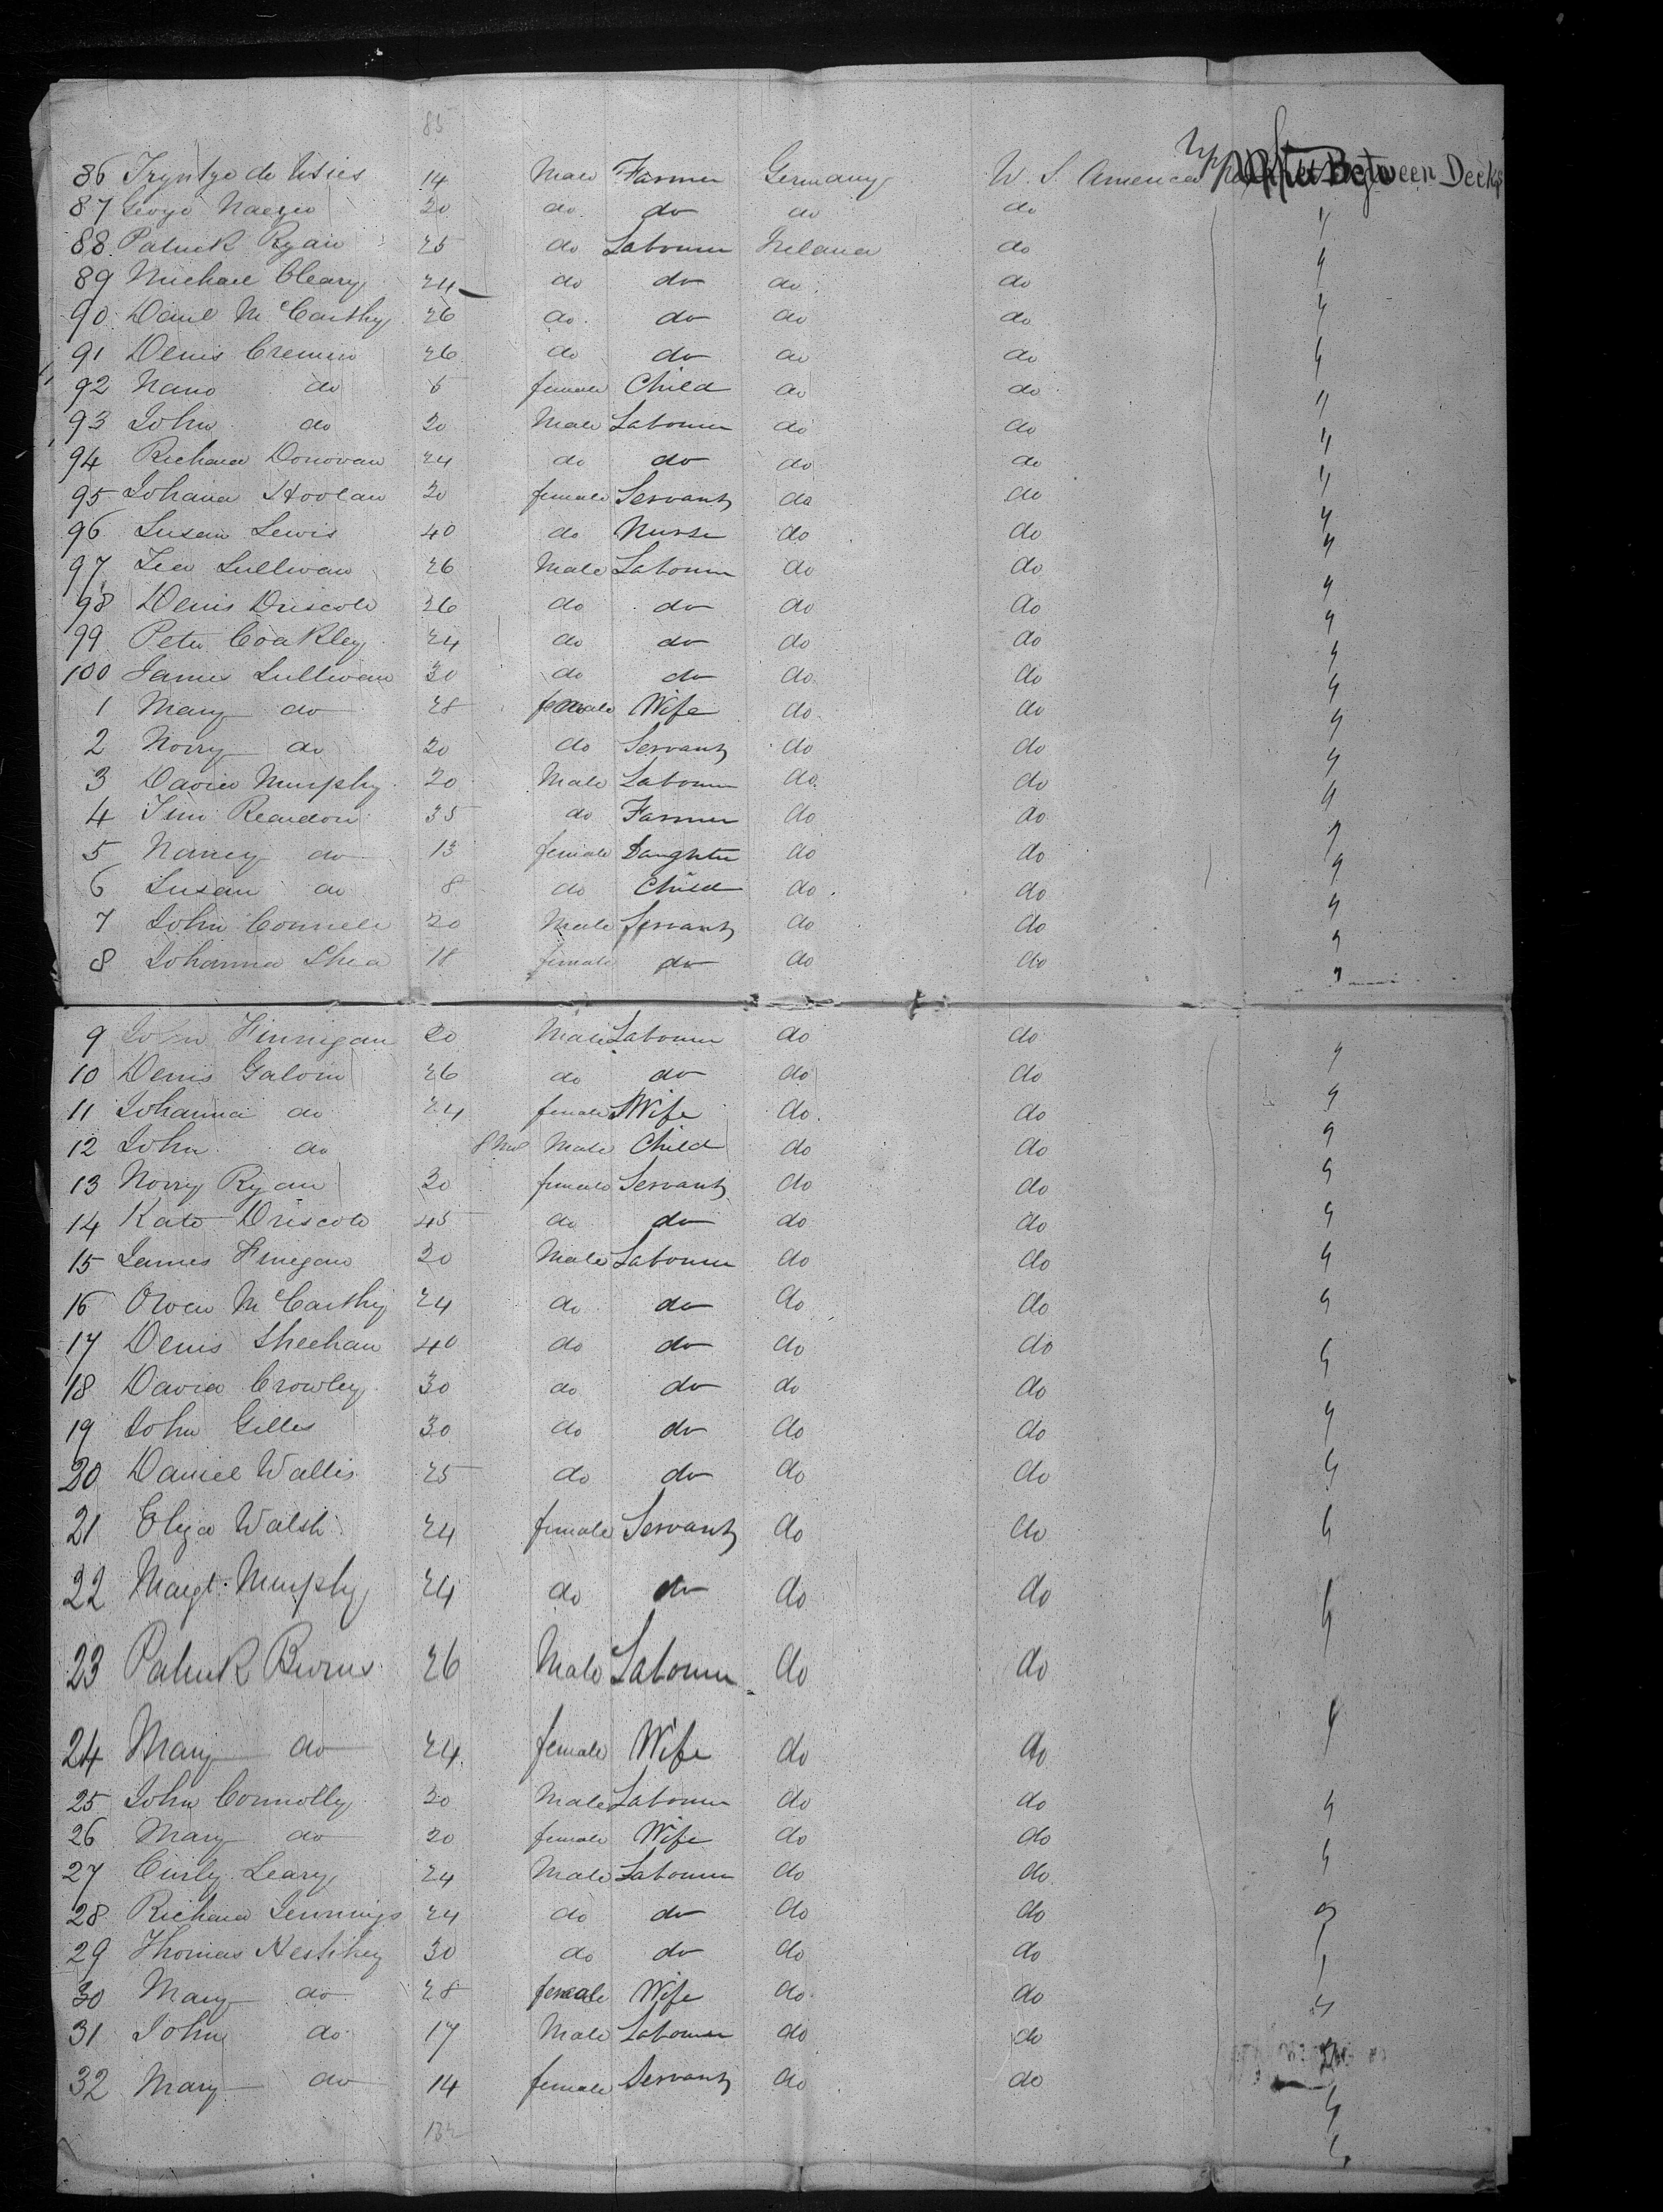 85
86 Tryntze de Vries 14 Male Farmer Germany U. S. America Upper Between Decks
87 George 20 do do do do "
88 Patrick Ryan 25 do Labourer Ireland do "
89 Michael Oleary 24 do do do do "
90 Danl McCarthy 26 do do do do "
91 Denis Cremin 26 do do do do "
92 Nano do 6 female Child do do "
93 John do 20 Male Labourer do do "
94 Richard Donovan 24 do do do do "
95 Johana Hoolan 20 female Servant do do "
96 Susan Lewis 40 do Nurse do do "
97 Sullivan 26 Male Labourer do do "
98 Denis Driscole 26 do do do do "
99 Peter Coakley 24 do do do do "
100 James Sullivan 30 do do do do "
1 Mary do 28 female Wife do do "
2 Norry do 20 do Servant do do "
3 David Murphy 20 Male Labourer do do "
4 Tim Reardon 35 do Farmer do do "
5 Nancy do 13 female Daughter do do "
6 Susan do 8 do Child do do "
7 John Connell 20 Male Servant do do "
8 Johanna Shea 18 female do do do "
9 John Finnigan 20 Male Labourer do do "
10 Denis Galvin 26 do do do do "
11 Johanna do 24 female Wife do do "
12 John do 8 Mo Male Child do do "
13 Norry Ryan 20 female Servant do do "
14 Kate Driscole 45 do do do do "
15 James Finegan 20 Male Labourer do do "
16 Owen McCarthy 24 do do do do "
17 Denis Sheehan 40 do do do do "
18 David Crowley 30 do do do do "
19 John Gilles 30 do do do do "
20 Daniel Wallis 25 do do do do "
21 Eliza Walsh 24 female Servant do do "
22 Margt Murphy 24 do do do do "
23 Patrick Burns 26 Male Labourer do do
24 Mary do 24 female Wife do do "
25 John Connolly 30 Male Labourer do do "
26 Mary do 20 female Wife do do "
27 Leary 24 Male Labourer do do
28 Richard Jennings 24 do do do do "
29 Thomas 30 do do do do "
30 Mary do 28 female Wife do do "
31 John do 17 Male Labourer do do
32 Mary do 14 female Servant do do "
132